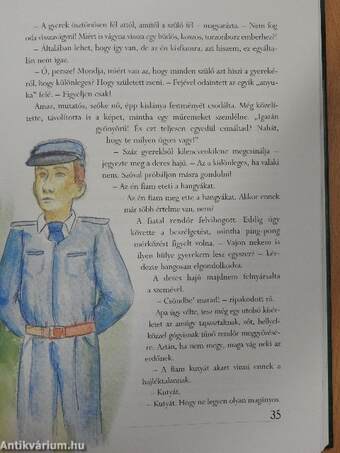 – A gyerek ösztönösen fél attól, amitől a szülő fél – magyarázta. – Nem fog
oda visszavágyni! Miért is vágyna vissza egy büdös, koszos, torzonborz emberhez?
– Általában lehet, hogy így van, de az én kisfiamra, azt hiszem, ez egyálta-
lán nem igaz.
– Ó, persze! Mondja, miért van az, hogy minden szülő azt hiszi a gyereké-
ről, hogy különleges? Hogy született zseni. – Fejével odaintett az egyik „anyu-
ka” felé. – Figyeljen csak!
Amaz, mutatós, szőke nő, épp kislánya festményét csodálta. Még közelí-
tette, távolította is a képet, mintha egy műremeket szemlélne. „Igazán
gyönyörű! És ezt teljesen egyedül csináltad? Nahát,
hogy te milyen ügyes vagy!”
– Száz gyerekből kilencvenkilenc megcsinálja –
jegyezte meg a deres hajú. – Az a különleges, ha valaki
nem. Szóval próbáljon másra gondolni!
– Az én fiam eteti a hangyákat.
– Az én fiam meg ette a hangyákat. Akkor ennek
már több értelme van, nem?
A fiatal rendőr felvihogott. Eddig úgy
követte a beszélgetést, mintha ping-pong
mérkőzést figyelt volna. – Vajon nekem is
ilyen hülye gyerekem lesz egyszer? – kér-
dezte hangosan elgondolkodva.
A deres hajú majdnem felnyársalta
a szemével.
– Csöndbe’ marad! – ripakodott rá.
Apa úgy vélte, tesz még egy utolsó kísér-
letet az amúgy tapasztaltnak, sőt, hellyel-
közzel gógyisnak tűnő rendőr meggyőzésé-
re. Aztán, ha nem megy, maga vág neki az
erdőnek.
– A fiam kutyát akart vinni ennek a
hajléktalannak.
– Kutyát.
– Kutyát. Hogy ne legyen olyan magányos.
35
Antikvárium.hu